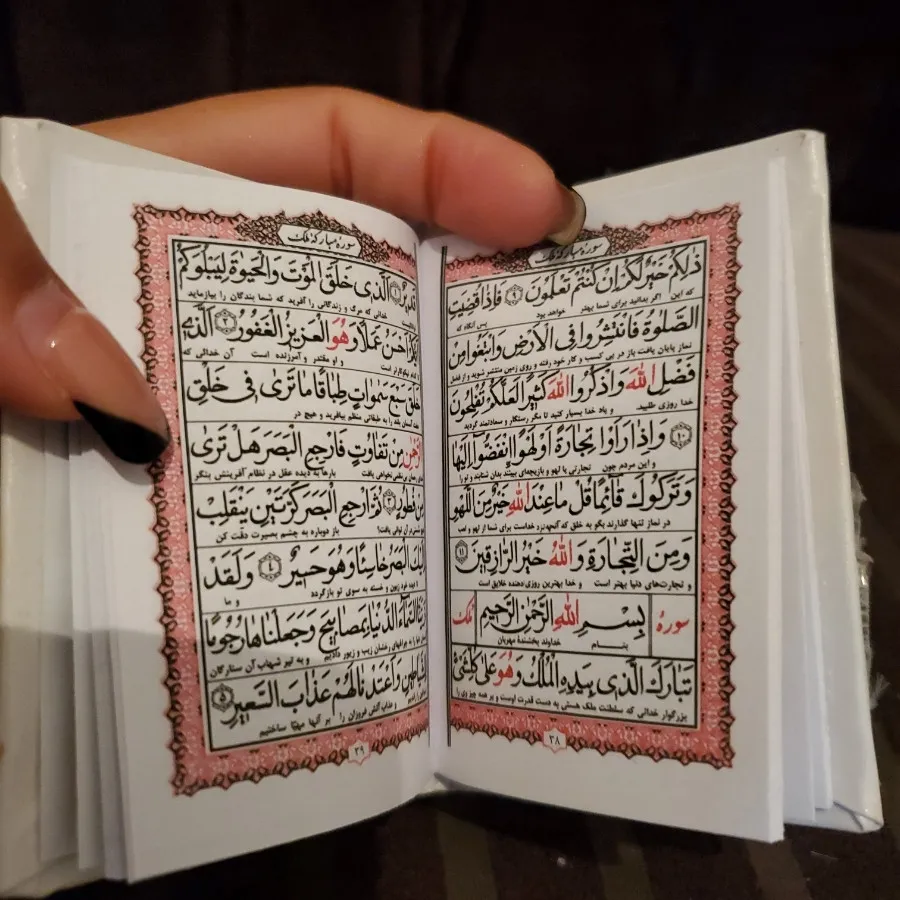 سورهٔ مبارکهٔ ملک
ذٰلِكُمْ خَيْرٌ لَكُمْ اِنْ كُنْتُمْ تَعْلَمُونَ ﴿٩﴾ فَاِذَا قُضِيَتِ
که این اگر بدانید برای شما بهتر خواهد بود پس آنگاه که
الصَّلٰوةُ فَانْتَشِرُوا فِى الْاَرْضِ وَابْتَغُوا مِنْ
نماز پایان یافت باز در پی کسب و کار خود رفته و روی زمین منتشر شوید و از فضل
فَضْلِ اللهِ وَاذْكُرُوا اللهَ كَثِيرًا لَعَلَّكُمْ تُفْلِحُونَ
خدا روزی طلبید. و یاد خدا بسیار کنید تا مگر رستگار و سعادتمند گردید
﴿١٠﴾ وَاِذَا رَاَوْا تِجَارَةً اَوْ لَهْوًا انْفَضُّوا اِلَيْهَا
و این مردم چون تجارتی یا لهو و بازیچه‌ای ببینند بدان شتابند و تو را
وَتَرَكُوكَ قَائِمًا قُلْ مَا عِنْدَ اللهِ خَيْرٌ مِنَ اللَّهْوِ
در نماز تنها گذارند بگو به خلق که آنچه نزد خداست برای شما از لهو و لعب
وَمِنَ التِّجَارَةِ وَاللهُ خَيْرُ الرَّازِقِينَ ﴿١١﴾
و تجارت‌های دنیا بهتر است و خدا بهترین روزی دهنده خلایق است
سوره بِسْمِ اللهِ الرَّحْمٰنِ الرَّحِيمِ ملک
بنام خداوند بخشندهٔ مهربان
تَبَارَكَ الَّذِى بِيَدِهِ الْمُلْكُ وَهُوَ عَلٰى كُلِّ شَىْءٍ
بزرگوار خدائی که سلطنت ملک هستی به دست قدرت اوست و بر همه چیز وی را
٣٨
سورهٔ مبارکهٔ ملک
قَدِيرٌ ﴿١﴾ الَّذِى خَلَقَ الْمَوْتَ وَالْحَيٰوةَ لِيَبْلُوَكُمْ
خدائی که مرگ و زندگانی را آفرید که شما بندگان را بیازماید
اَيُّكُمْ اَحْسَنُ عَمَلًا وَهُوَ الْعَزِيزُ الْغَفُورُ ﴿٢﴾ الَّذِى
نیکوکارتر است و او مقتدر و آمرزنده است آن خدائی که
خَلَقَ سَبْعَ سَمٰوَاتٍ طِبَاقًا مَا تَرٰى فِى خَلْقِ
هفت آسمان بلند را به طبقاتی منظم بیافرید و هیچ در
الرَّحْمٰنِ مِنْ تَفَاوُتٍ فَارْجِعِ الْبَصَرَ هَلْ تَرٰى
بی‌نظمی نخواهی یافت بارها به دیده عقل در نظام آفرینش بنگر
مِنْ فُطُورٍ ﴿٣﴾ ثُمَّ ارْجِعِ الْبَصَرَ كَرَّتَيْنِ يَنْقَلِبْ
در آن توانی یافت؟ باز دوباره به چشم بصیرت دقت کن
اِلَيْكَ الْبَصَرُ خَاسِئًا وَهُوَ حَسِيرٌ ﴿٤﴾ وَلَقَدْ
تا دیده خرد زبون و خسته به سوی تو بازگردد و ما
زَيَّنَّا السَّمَاءَ الدُّنْيَا بِمَصَابِيحَ وَجَعَلْنَاهَا رُجُومًا
را به چراغهای رخشان زیب و زیور دادیم و به تیر شهاب آن ستارگان
لِلشَّيَاطِينِ وَاَعْتَدْنَا لَهُمْ عَذَابَ السَّعِيرِ ﴿٥﴾
و عذاب آتش فروزان را بر آنها مهیّا ساختیم
٣٩